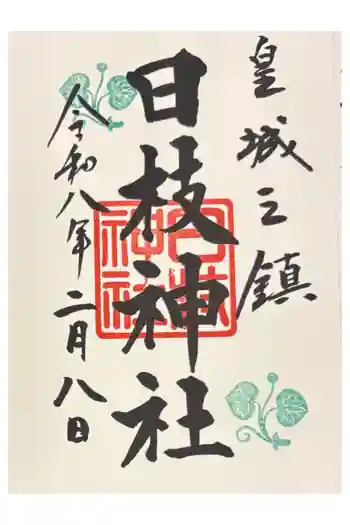 皇城之鎮
日枝神社
日枝神社
令和八年二月八日